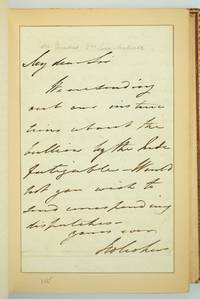 My dear Sir
We are sending
out our instruc
tions about the
bullion by the Inde
fatigable - Would
not you wish to
send corresponding
dispatches -
yours ever